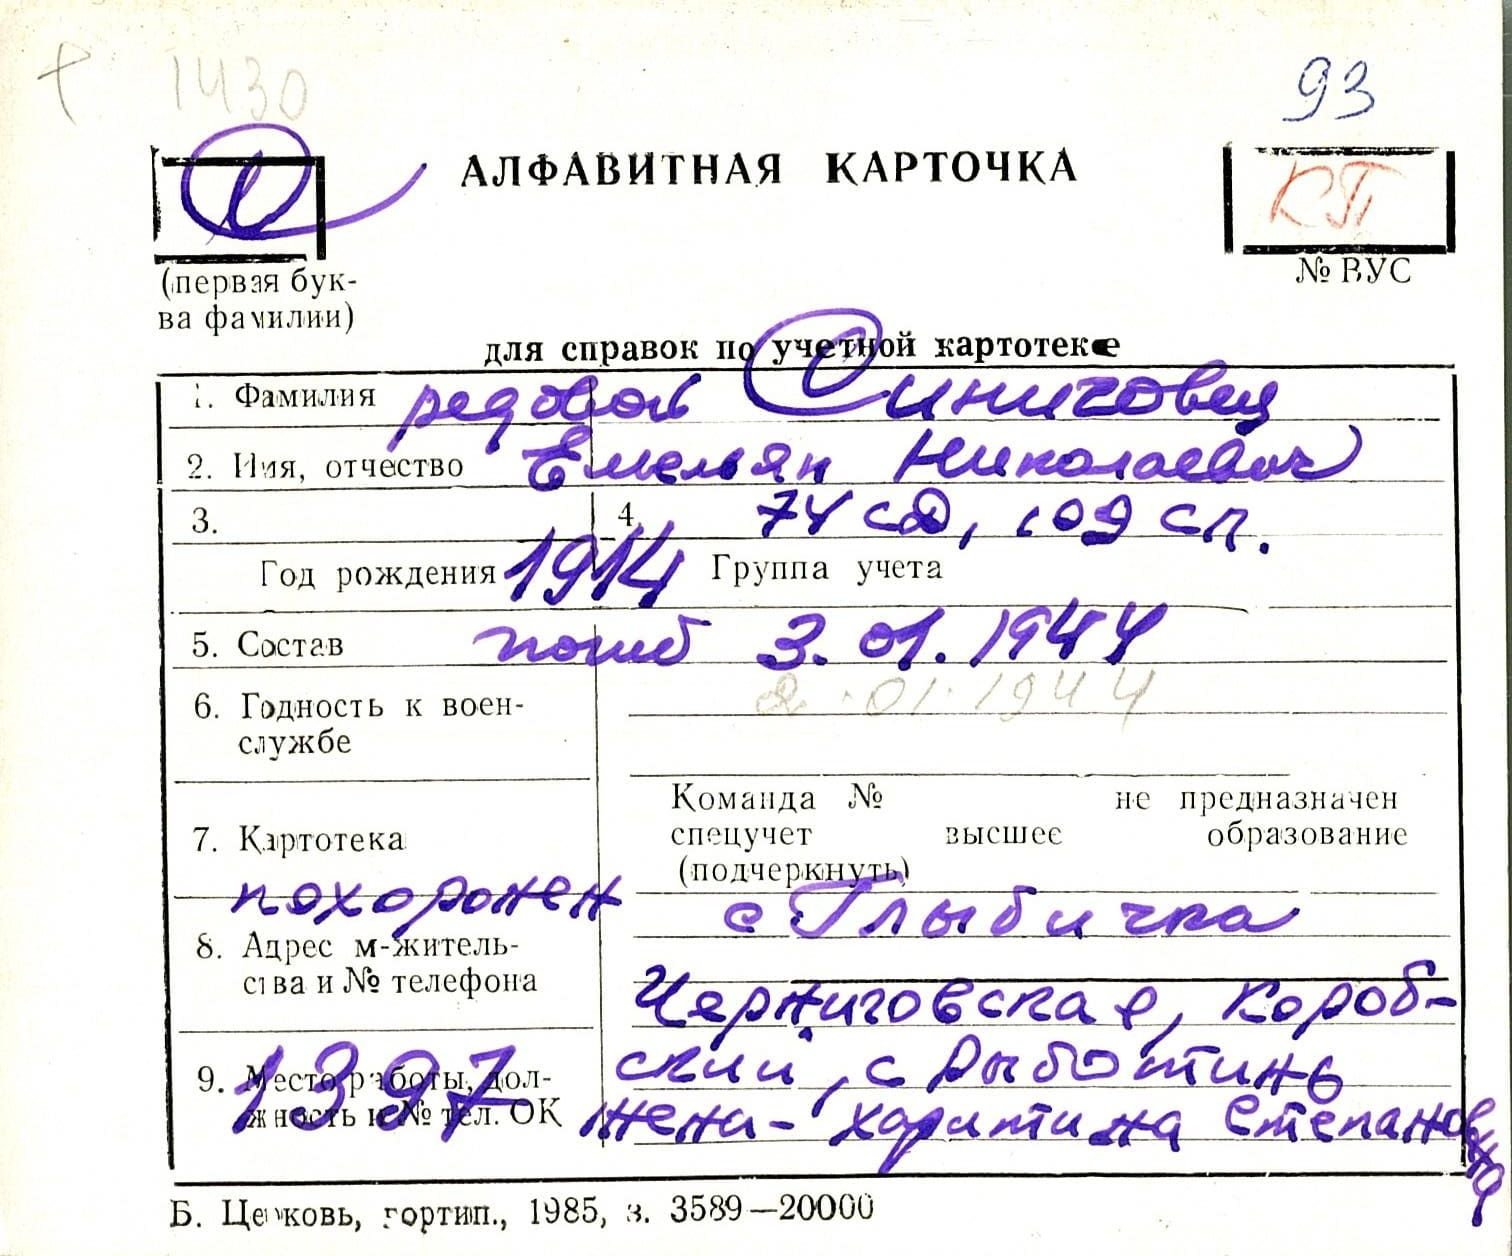 1430
93
С
АЛФАВИТНАЯ КАРТОЧКА
КП
(первая бук-
ва фамилии)
№ ВУС
для справок по учетной картотеке
1. Фамилия редовой Синиговец
2. Имя, отчество Емельян Николаевич
3. 4 74 сд, 109 сп.
Год рождения 1914 Группа учета
5. Состав погиб 3.01.1944
2.01.1944
6. Годность к воен-
службе
Команда № не предназначен
7. Картотека спецучет высшее образование
(подчеркнуть)
похоронен с Глыбичка
8. Адрес м-житель-
ства и № телефона
Черниговская, Короб-
ский, с Рыботинь
9. Место работы, дол-
жность и № тел. ОК
1397
жена- Харитина Степановна
Б. Церковь, гортип., 1985, з. 3589—20000